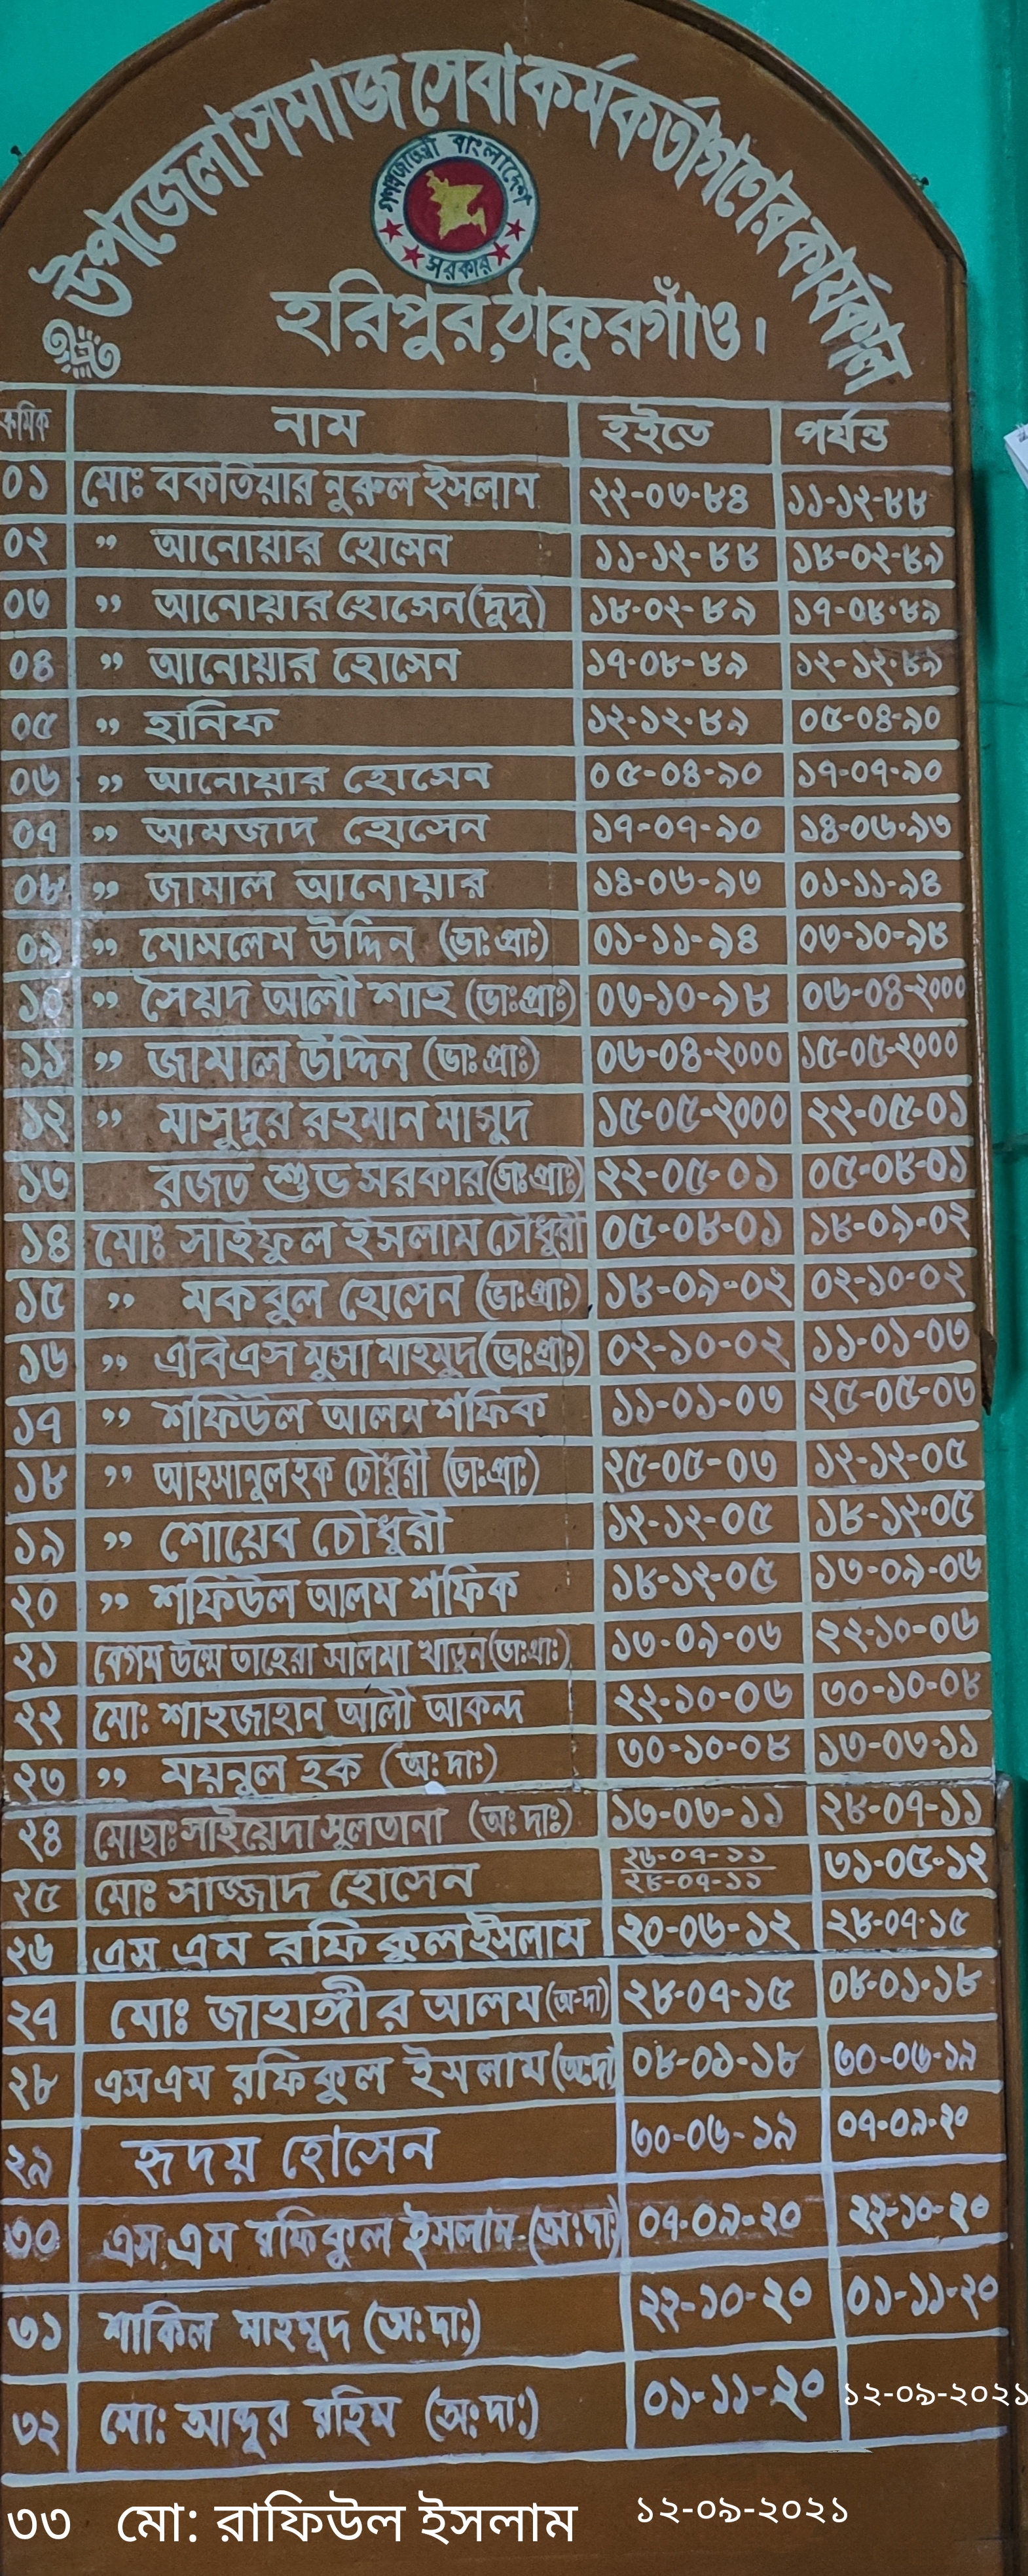 উপজেলা সমাজ সেবা কর্মকর্তাগণের কার্যকাল
গণপ্রজাতন্ত্রী বাংলাদেশ
সরকার
হরিপুর, ঠাকুরগাঁও।
ক্রমিক নাম হইতে পর্যন্ত
০১ মোঃ বকতিয়ার নুরুল ইসলাম ২২-০৩-৮৪ ১১-১২-৮৮
০২ " আনোয়ার হোসেন ১১-১২-৮৮ ১৮-০২-৮৯
০৩ " আনোয়ার হোসেন (দুদু) ১৮-০২-৮৯ ১৭-০৮-৮৯
০৪ " আনোয়ার হোসেন ১৭-০৮-৮৯ ১২-১২-৮৯
০৫ " হানিফ ১২-১২-৮৯ ০৫-০৪-৯০
০৬ " আনোয়ার হোসেন ০৫-০৪-৯০ ১৭-০৭-৯০
০৭ " আমজাদ হোসেন ১৭-০৭-৯০ ১৪-০৬-৯৩
০৮ " জামাল আনোয়ার ১৪-০৬-৯৩ ০১-১১-৯৪
০৯ " মোসলেম উদ্দিন (ভা:প্রা:) ০১-১১-৯৪ ০৩-১০-৯৮
১০ " সৈয়দ আলী শাহ (ভা:প্রা:) ০৩-১০-৯৮ ০৬-০৪-২০০০
১১ " জামাল উদ্দিন (ভা:প্রা:) ০৬-০৪-২০০০ ১৫-০৫-২০০০
১২ " মাসুদুর রহমান মাসুদ ১৫-০৫-২০০০ ২২-০৫-০১
১৩ রজত শুভ সরকার (ভা:প্রা:) ২২-০৫-০১ ০৫-০৮-০১
১৪ মোঃ সাইফুল ইসলাম চৌধুরী ০৫-০৮-০১ ১৮-০৯-০২
১৫ " মকবুল হোসেন (ভা:প্রা:) ১৮-০৯-০২ ০২-১০-০২
১৬ " এবিএস মুসা মাহমুদ (ভা:প্রা:) ০২-১০-০২ ১১-০১-০৩
১৭ " শফিউল আলম শফিক ১১-০১-০৩ ২৫-০৫-০৩
১৮ " আহসানুল হক চৌধুরী (ভা:প্রা:) ২৫-০৫-০৩ ১২-১২-০৫
১৯ " শোয়েব চৌধুরী ১২-১২-০৫ ১৮-১২-০৫
২০ " শফিউল আলম শফিক ১৮-১২-০৫ ১৩-০৯-০৬
২১ বেগম উম্মে তাহেরা সালমা খাতুন (ভা:প্রা:) ১৩-০৯-০৬ ২২-১০-০৬
২২ মো: শাহজাহান আলী আকন্দ ২২-১০-০৬ ৩০-১০-০৮
২৩ " ময়নুল হক (অ:দা:) ৩০-১০-০৮ ১৩-০৩-১১
২৪ মোছাঃ সাইয়েদা সুলতানা (অ: দা:) ১৩-০৩-১১ ২৮-০৭-১১
২৫ মোঃ সাজ্জাদ হোসেন ২৬-০৭-১১ ৩১-০৫-১২
২৮-০৭-১১
২৬ এস এম রফিকুল ইসলাম ২০-০৬-১২ ২৮-০৭-১৫
২৭ মোঃ জাহাঙ্গীর আলম (অ-দা) ২৮-০৭-১৫ ০৮-০১-১৮
২৮ এস এম রফিকুল ইসলাম (অ:দা) ০৮-০১-১৮ ৩০-০৬-১৯
২৯ হৃদয় হোসেন ৩০-০৬-১৯ ০৭-০৯-২০
৩০ এস এম রফিকুল ইসলাম (অ:দা:) ০৭-০৯-২০ ২২-১০-২০
৩১ শাকিল মাহমুদ (অ:দা:) ২২-১০-২০ ০১-১১-২০
৩২ মো: আব্দুর রহিম (অ:দা:) ০১-১১-২০ ১২-০৯-২০২১
৩৩ মো: রাফিউল ইসলাম ১২-০৯-২০২১